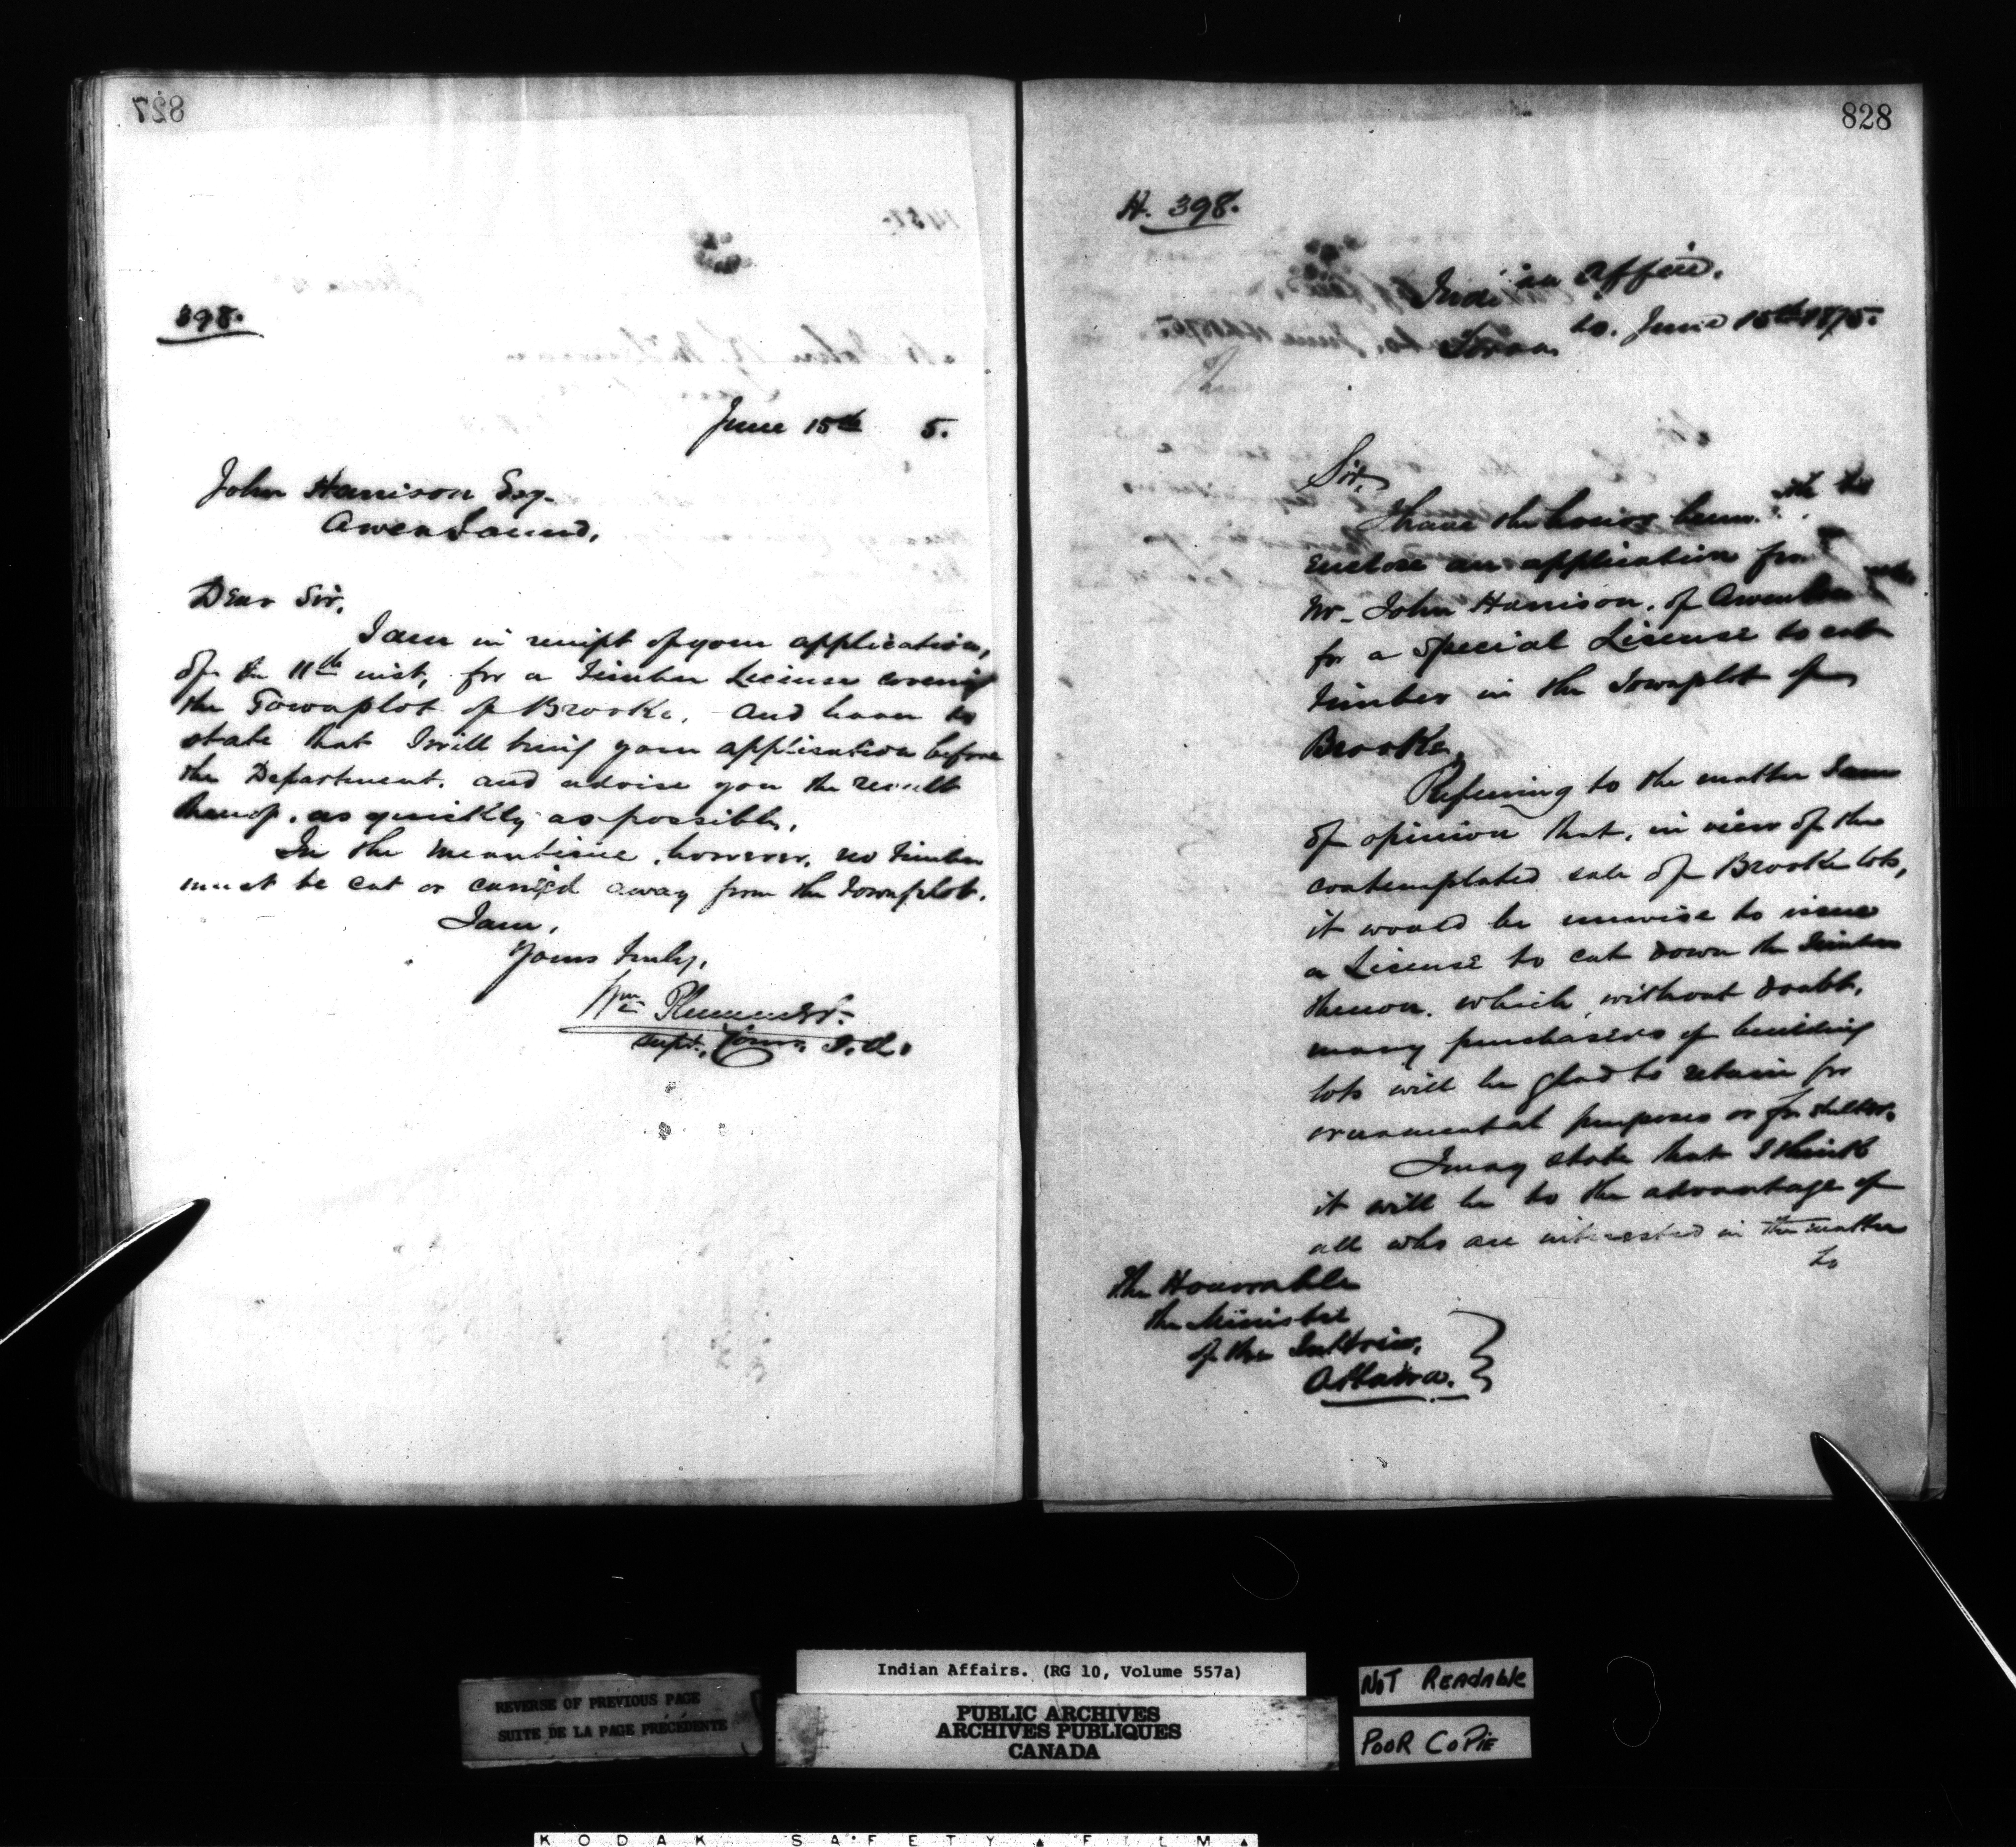 827
398.
June 15th 5.
John Harrison Esq.
Owen Sound,
Dear Sir,
I am in receipt of your application,
of the 11th inst, for a Timber License covering
the Townplot of Brooke, and have to
state that I will bring your application before
the Department, and advise you the result
thereof, as quickly as possible,
In the meantime, however, no timber
must be cut or carried away from the Townplot.
I am,
Yours truly,
Wm Plummer.
Supt., Comr. I.A.
828
H. 398.
Indian Office,
to. June 15th 1875.
Sir,
I have the honor
enclose an application from
Mr. John Harrison, of Owen
for a Special License to cut
timber in the Townplot of
Brooke.
Referring to the matter I am
of opinion that, in view of the
contemplated sale of Brooke lots,
it would be unwise to issue
a License to cut down the timber
thereon, which, without doubt,
many purchasers of building
lots will be glad to retain for
ornamental purposes or for shelter.
I may state that I think
it will be to the advantage of
all who are interested in the matter
to
The Honorable
the Minister
of the Interior,
Ottawa.
Indian Affairs. (RG 10, Volume 557a)
REVERSE OF PREVIOUS PAGE
SUITE DE LA PAGE PRÉCÉDENTE
PUBLIC ARCHIVES
ARCHIVES PUBLIQUES
CANADA
NOT READABLE
POOR COPIE
KODAK SAFETY FILM